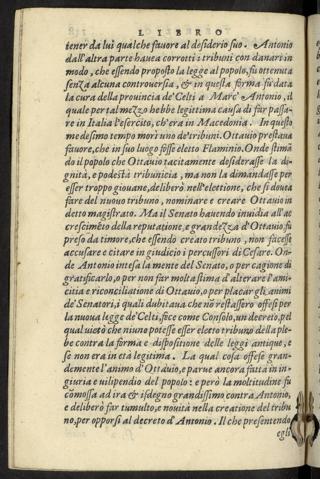 LIBRO
tener da lui qualche fauore al desiderio suo. Antonio
dall'altra parte hauea corrotti i tribuni con danari in
modo, che essendo proposto la legge al popolo, fu ottenuta
senza alcuna controuersia, & in questa forma fu data
la cura della prouincia de' Celti a Marc' Antonio, il
quale per tal mezzo hebbe legitima causa di far passa-
re in Italia l'esercito, ch'era in Macedonia. In questo
medesimo tempo morì uno de' tribuni. Ottauio prestaua
fauore, che in suo luogo fosse eletto Flaminio. Onde stimã
do il popolo che Ottauio tacitamente desiderasse la di-
gnità, e podestà tribunicia, ma non la dimandasse per
esser troppo giouane, deliberò nell'elettione, che si douea
fare del nuouo tribuno, nominare e creare Ottauio in
detto magistrato. Ma il Senato hauendo inuidia all'ac
crescimẽto della reputatione, e grandezza d'Ottauio, fu
preso da timore, che essendo creato tribuno, non facesse
accusare e citare in giudicio i percussori di Cesare. On-
de Antonio intesa la mente del Senato, o per cagione di
gratificarlo, o per non far molta stima d'alterare l'ami-
citia e riconciliatione di Ottauio, o per placar gli animi
de' Senatori, i quali dubitaua che nõ restassero offesi per
la nuoua legge de' Celti, fece come Consolo, un decreto, pel
qual uietò che niuno potesse esser eletto tribuno della ple-
be contra la forma e dispositione delle leggi antique, e
se non era in età legitima. La qual cosa offese gran-
demente l'animo d'Ottauio, e parue ancora fatta in in-
giuria e uilipendio del popolo: e però la moltitudine fu
cõmossa ad ira & isdegno grandissimo contra Antonio,
e deliberò far tumulto, e nouità nella creatione del tribu
no, per opporsi al decreto d'Antonio. Il che presentendo
egli